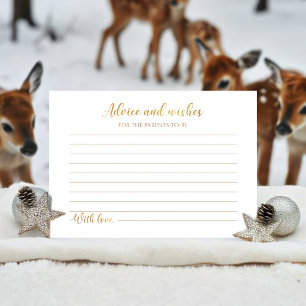 Advice and wishes
FOR THE PARENTS-TO-BE
With love,